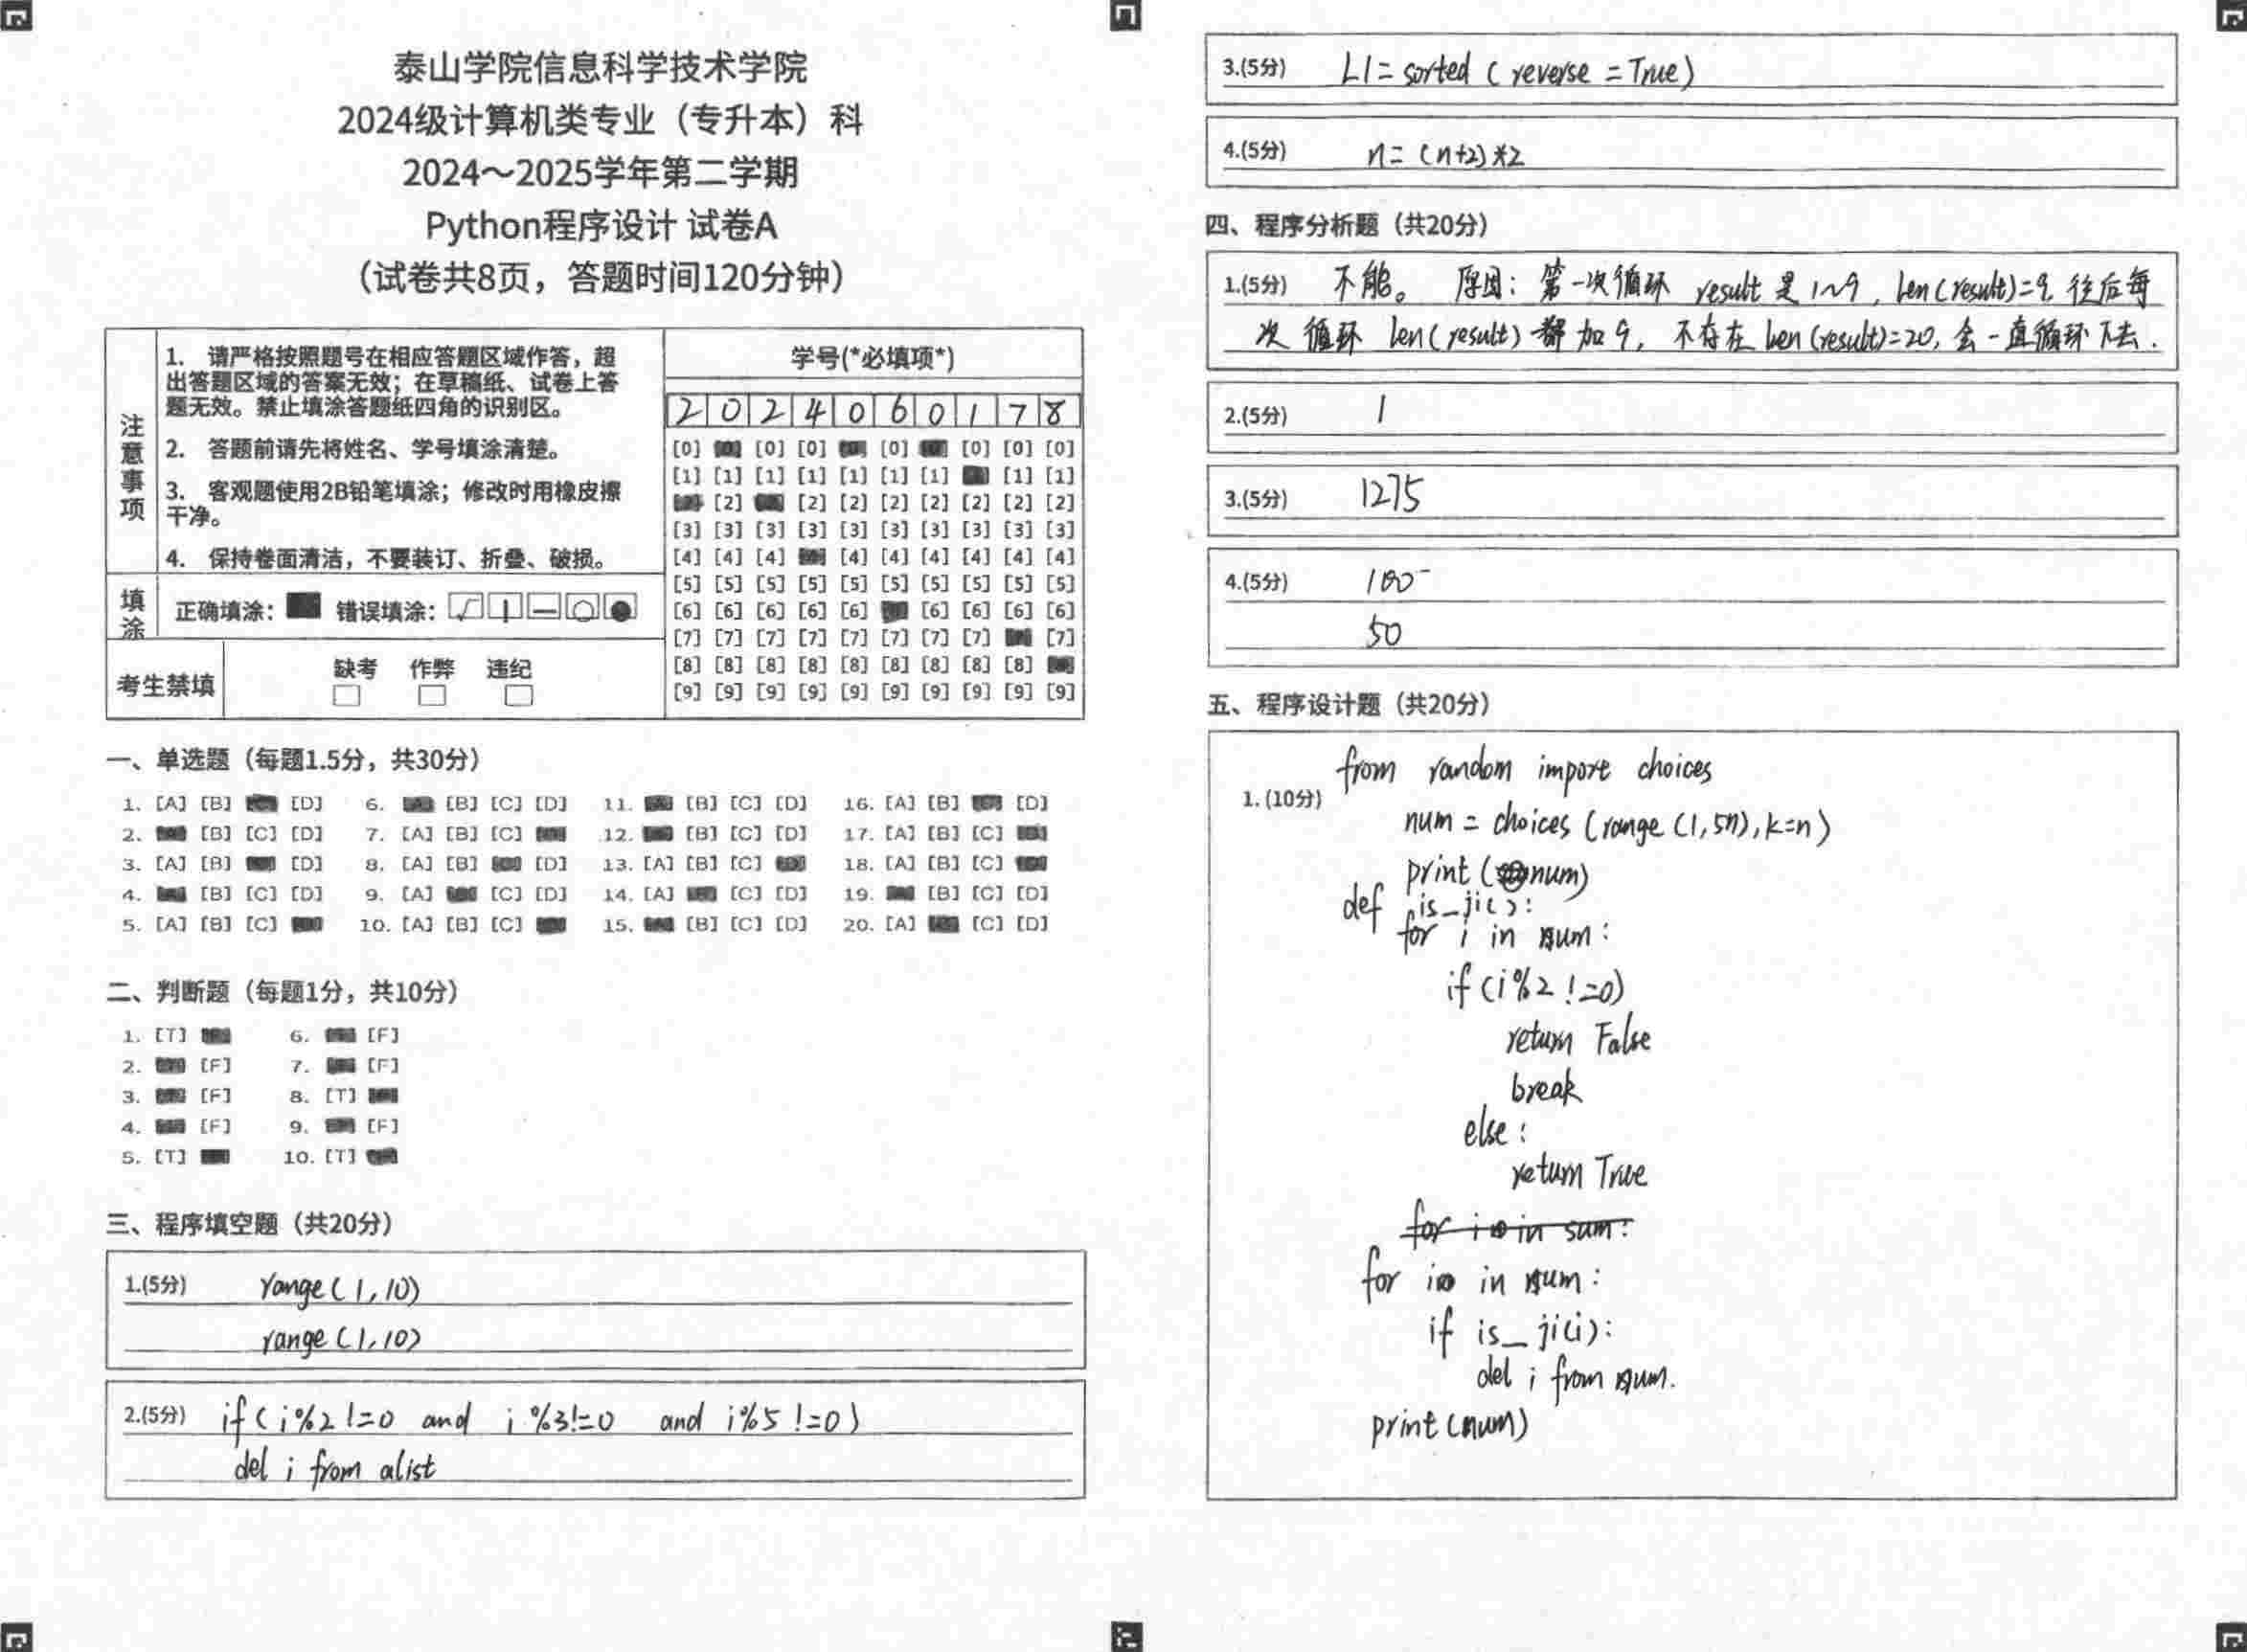 泰山学院信息科学技术学院
2024级计算机类专业（专升本）科
2024～2025学年第二学期
Python程序设计 试卷A
（试卷共8页，答题时间120分钟）
注意事项
1. 请严格按照题号在相应答题区域作答，超
出答题区域的答案无效；在草稿纸、试卷上答
题无效。禁止填涂答题纸四角的识别区。
2. 答题前请先将姓名、学号填涂清楚。
3. 客观题使用2B铅笔填涂；修改时用橡皮擦
干净。
4. 保持卷面清洁，不要装订、折叠、破损。
填涂
正确填涂： 错误填涂：
考生禁填
缺考 作弊 违纪
学号(*必填项*)
2 0 2 4 0 6 0 1 7 8
[0] [0] [0] [0] [0] [0] [0]
[1] [1] [1] [1] [1] [1] [1] [1] [1]
[2] [2] [2] [2] [2] [2] [2] [2]
[3] [3] [3] [3] [3] [3] [3] [3] [3] [3]
[4] [4] [4] [4] [4] [4] [4] [4] [4]
[5] [5] [5] [5] [5] [5] [5] [5] [5] [5]
[6] [6] [6] [6] [6] [6] [6] [6] [6]
[7] [7] [7] [7] [7] [7] [7] [7] [7]
[8] [8] [8] [8] [8] [8] [8] [8] [8]
[9] [9] [9] [9] [9] [9] [9] [9] [9] [9]
一、单选题（每题1.5分，共30分）
1. [A] [B] [D] 6. [B] [C] [D] 11. [B] [C] [D] 16. [A] [B] [D]
2. [B] [C] [D] 7. [A] [B] [C] 12. [B] [C] [D] 17. [A] [B] [C]
3. [A] [B] [D] 8. [A] [B] [D] 13. [A] [B] [C] 18. [A] [B] [C]
4. [B] [C] [D] 9. [A] [C] [D] 14. [A] [C] [D] 19. [B] [C] [D]
5. [A] [B] [C] 10. [A] [B] [C] 15. [B] [C] [D] 20. [A] [C] [D]
二、判断题（每题1分，共10分）
1. [T] 6. [F]
2. [F] 7. [F]
3. [F] 8. [T]
4. [F] 9. [F]
5. [T] 10. [T]
三、程序填空题（共20分）
1.(5分) range(1,10)
range(1,10)
2.(5分) if(i%2!=0 and i%3!=0 and i%5!=0)
del i from alist
3.(5分) L1=sorted(reverse=True)
4.(5分) n=(n+2)*2
四、程序分析题（共20分）
1.(5分) 不能。 原因：第一次循环 result 是 1~9，len(result)=9，往后每
次循环 len(result) 都加9，不存在len(result)=20，会一直循环下去.
2.(5分) 1
3.(5分) 1275
4.(5分) 100
50
五、程序设计题（共20分）
from random import choices
1.(10分)
num = choices(range(1,5n),k=n)
print(num)
def is_ji():
for i in num:
if(i%2!=0)
return False
break
else:
return True
for i in sum:
for i in num:
if is_ji(i):
del i from num.
print(num)